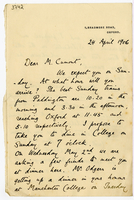 24 April 1906
Dear M. Cumont,
We expect you on Sun-
day. At what hour will you
arrive? The best Sunday trains
from Paddington are 10.20 in the
morning and 3.30 in the afternoon
reaching Oxford at 11.45 and
5.10 respectively. I propose to
take you to dine in College on
Sunday at 7 o'clock.
On Wednesday May 2nd we are
asking a few friends to meet you
at dinner here. Mr Odgers is
getting up a dinner in your honour
at Manchester College on Tuesday